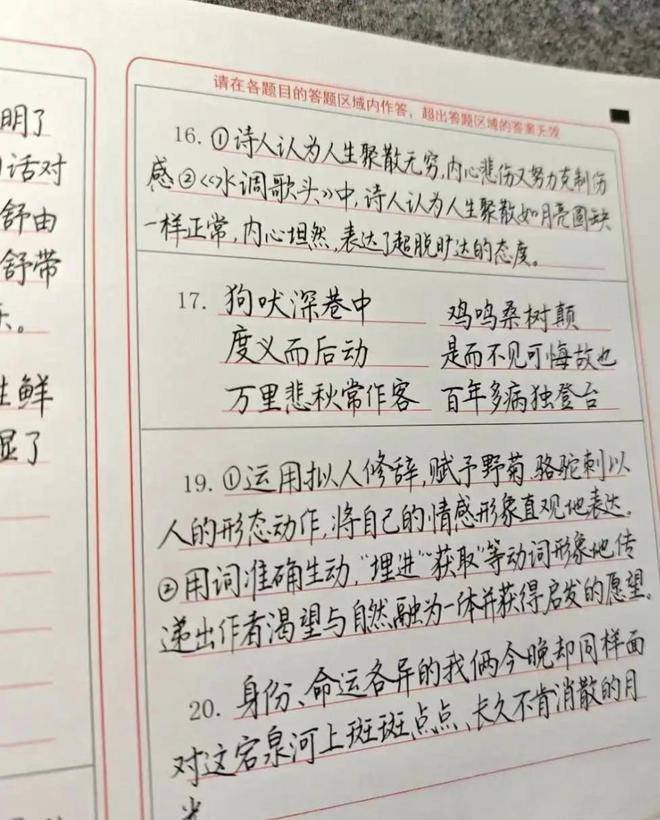 明了
话对
舒由
舒带
乐。
生鲜
显了
请在各题目的答题区域内作答，超出答题区域的答案无效
16. ①诗人认为人生聚散无穷,内心悲伤又努力克制伤
感②《水调歌头》中,诗人认为人生聚散如月亮圆缺
一样正常,内心坦然,表达了超脱旷达的态度。
17. 狗吠深巷中 鸡鸣桑树颠
度义而后动 是而不见可悔故也
万里悲秋常作客 百年多病独登台
19. ①运用拟人修辞,赋予野菊、骆驼刺以
人的形态动作,将自己的情感形象直观地表达。
②用词准确生动,“埋进”“获取”等动词形象地传
递出作者渴望与自然融为一体并获得启发的愿望。
20. 身份、命运各异的我俩今晚却同样面
对这宕泉河上斑斑点点、长久不肯消散的月
光